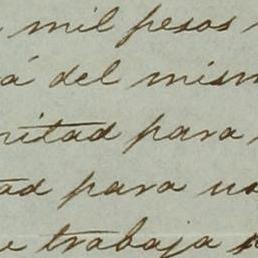 mil pesos
á del mism
mitad para
tad para
e trabaja